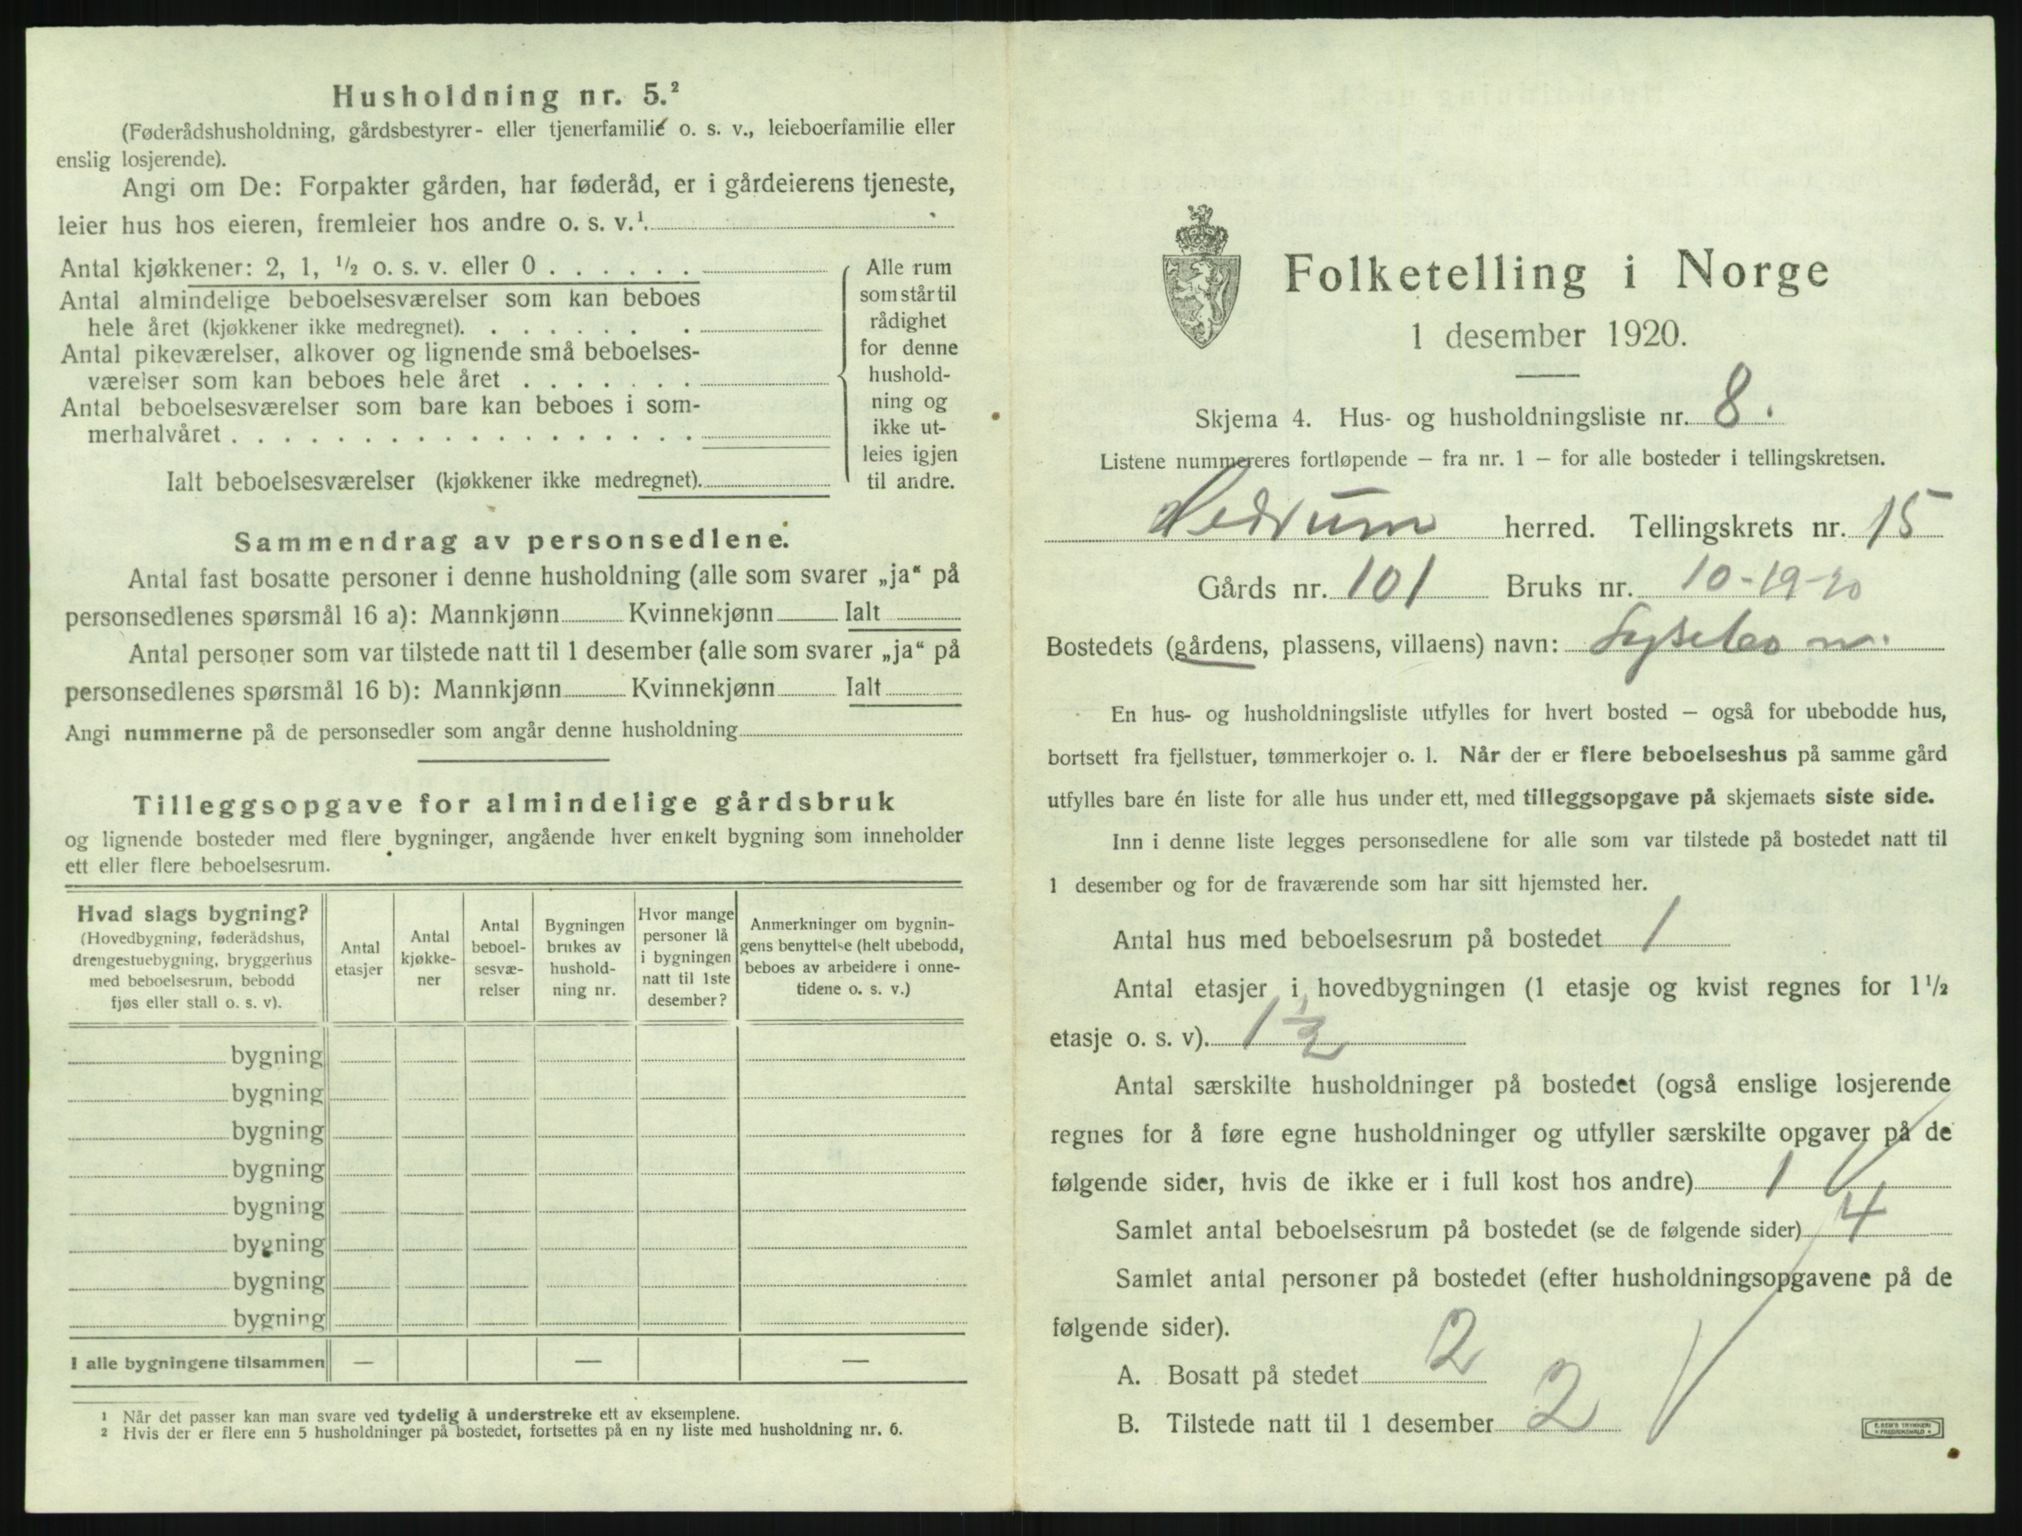 Husholdning nr. 5.²
(Føderådshusholdning, gårdsbestyrer- eller tjenerfamilie o. s. v., leieboerfamilie eller
enslig losjerende).
Angi om De: Forpakter gården, har føderåd, er i gårdeierens tjeneste,
leier hus hos eieren, fremleier hos andre o. s. v.¹
Antal kjøkkener: 2, 1, ½ o. s. v. eller 0 . . . . . .
Antal almindelige beboelsesværelser som kan beboes
hele året (kjøkkener ikke medregnet). . . . . . . .
Antal pikeværelser, alkover og lignende små beboelses-
værelser som kan beboes hele året . . . . . . .
Antal beboelsesværelser som bare kan beboes i som-
merhalvåret . . . . . . . . . . . . . . . . . .
Ialt beboelsesværelser (kjøkkener ikke medregnet).
Alle rum
som står til
rådighet
for denne
hushold-
ning og
ikke ut-
leies igjen
til andre.
Sammendrag av personsedlene.
Antal fast bosatte personer i denne husholdning (alle som svarer „ja“ på
personsedlenes spørsmål 16 a): Mannkjønn Kvinnekjønn Ialt
Antal personer som var tilstede natt til 1 desember (alle som svarer „ja“ på
personsedlenes spørsmål 16 b): Mannkjønn Kvinnekjønn Ialt
Angi nummerne på de personsedler som angår denne husholdning
Tilleggsopgave for almindelige gårdsbruk
og lignende bosteder med flere bygninger, angående hver enkelt bygning som inneholder
ett eller flere beboelsesrum.
Hvad slags bygning?
(Hovedbygning, føderådshus,
drengestuebygning, bryggerhus
med beboelsesrum, bebodd
fjøs eller stall o. s. v).
Antal
etasjer
Antal
kjøkke-
ner
Antal
beboel-
sesvæ-
relser
Bygningen
brukes av
hushold-
ning nr.
Hvor mange
personer lå
i bygningen
natt til 1ste
desember?
Anmerkninger om bygnin-
gens benyttelse (helt ubebodd,
beboes av arbeidere i onne-
tidene o. s. v.)
bygning
bygning
bygning
bygning
bygning
bygning
bygning
bygning
I alle bygningene tilsammen — — —
¹ Når det passer kan man svare ved tydelig å understreke ett av eksemplene.
² Hvis der er flere enn 5 husholdninger på bostedet, fortsettes på en ny liste med husholdning nr. 6.
Folketelling i Norge
1 desember 1920.
Skjema 4. Hus- og husholdningsliste nr. 8.
Listene nummereres fortløpende – fra nr. 1 – for alle bosteder i tellingskretsen.
Hedrum herred. Tellingskrets nr. 15
Gårds nr. 101 Bruks nr. 10-19-20
Bostedets (gårdens, plassens, villaens) navn: Lysebo n.
En hus- og husholdningsliste utfylles for hvert bosted – også for ubebodde hus,
bortsett fra fjellstuer, tømmerkojer o. l. Når der er flere beboelseshus på samme gård
utfylles bare én liste for alle hus under ett, med tilleggsopgave på skjemaets siste side.
Inn i denne liste legges personsedlene for alle som var tilstede på bostedet natt til
1 desember og for de fraværende som har sitt hjemsted her.
Antal hus med beboelsesrum på bostedet 1
Antal etasjer i hovedbygningen (1 etasje og kvist regnes for 1½
etasje o. s. v). 1½
Antal særskilte husholdninger på bostedet (også enslige losjerende
regnes for å føre egne husholdninger og utfyller særskilte opgaver på de
følgende sider, hvis de ikke er i full kost hos andre) 1
Samlet antal beboelsesrum på bostedet (se de følgende sider) 4
Samlet antal personer på bostedet (efter husholdningsopgavene på de
følgende sider).
A. Bosatt på stedet 2
B. Tilstede natt til 1 desember 2